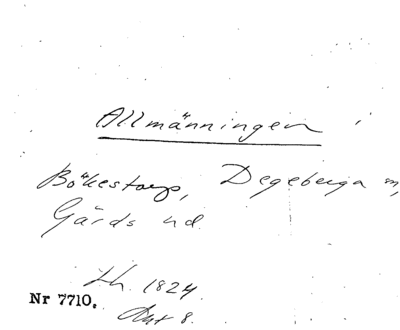 Allmänningen
Bökestorp, Degeberga
Gärds hd.
1824.
Nr 7710.
Akt 8.